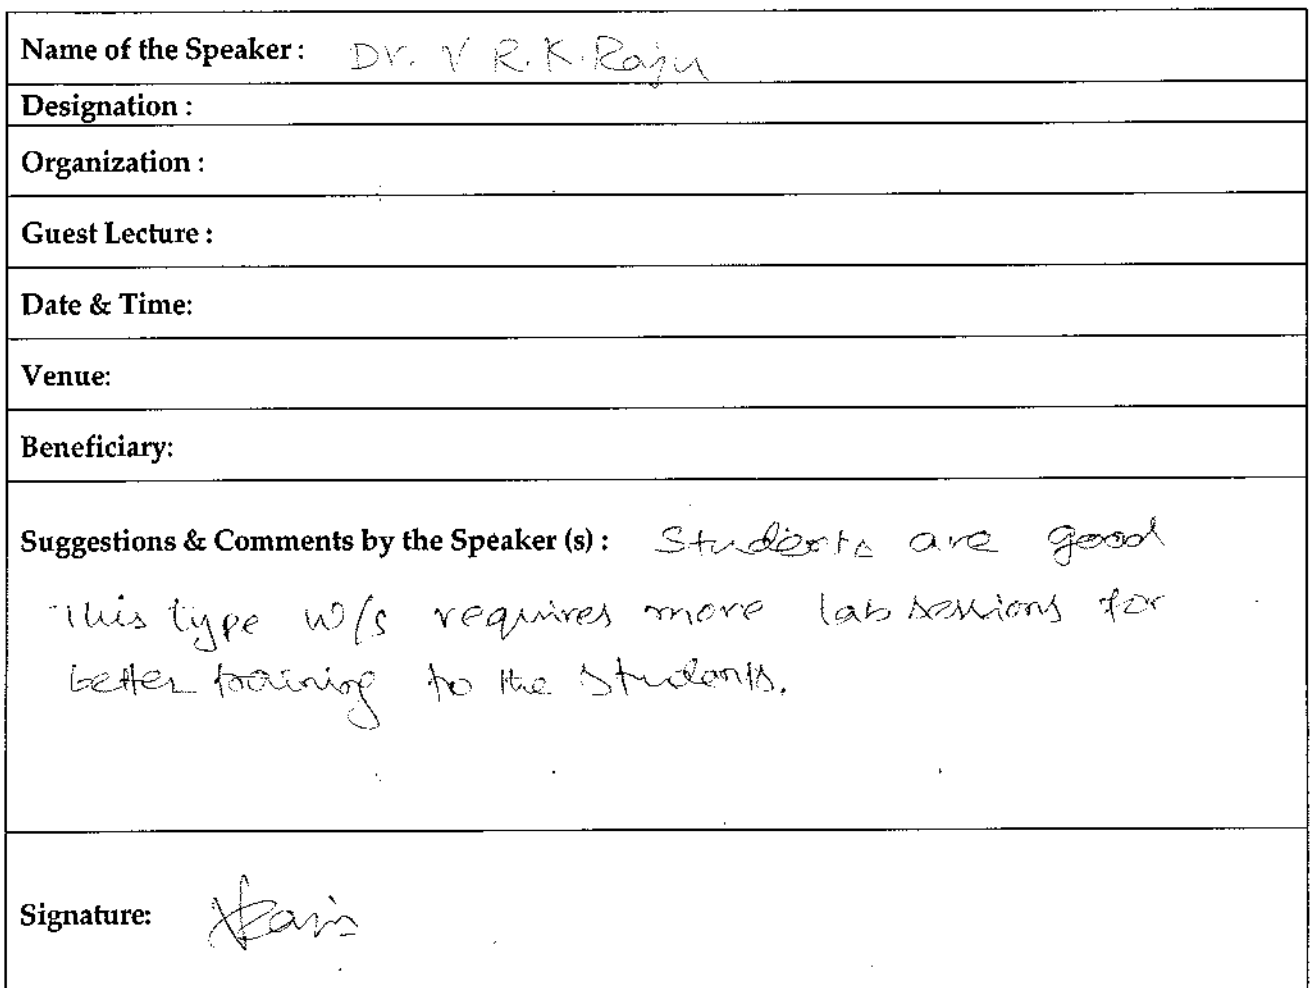 Name of the Speaker : Dr. V R.K.Raju
Designation :
Organization :
Guest Lecture :
Date & Time:
Venue:
Beneficiary:
Suggestions & Comments by the Speaker (s) : Students are good
This type w/s requires more lab sessions for
better training to the students.
Signature: